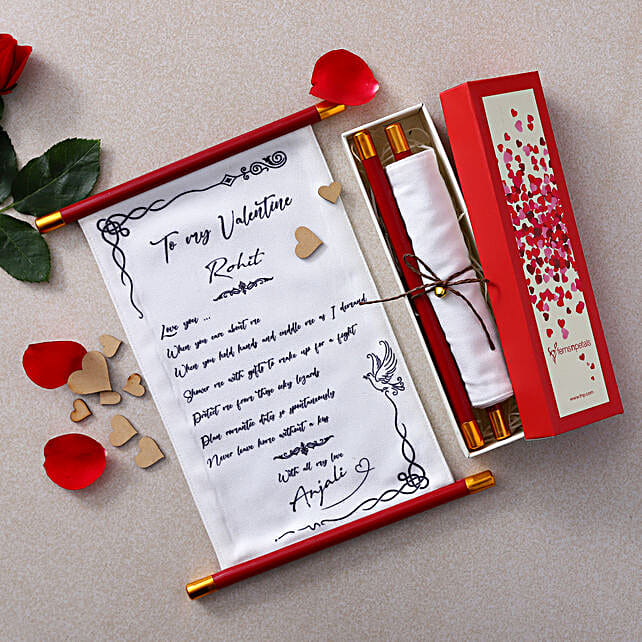 To my Valentine
Rohit
Love you ...
When you care about me
When you hold hands and cuddle me as I demand
Shower me with gifts to make up for a fight
Protect me from those icky lizards
Plan romantic dates so spontaneously
Never leave home without a kiss
With all my love
Anjali
fernsnpetals
www.fnp.com